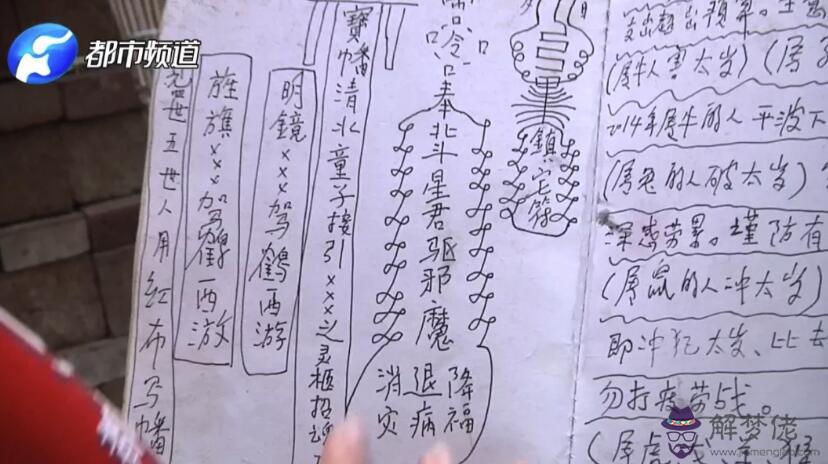 都市频道
五世人用红布写幡
旌旗×××驾鹤西游
明鏡×××驾鶴西游
寶幡清北童子接引×××之灵柩招
奉北斗星君驱邪魔
降福
退病
消灾
鎮宅符
(属牛人害太岁)(属
2014年属牛的人平波下
(属兔的人破太岁)
深感劳累。谨防有
(属鼠的人冲太岁)
即冲犯太岁、比去
勿打疲劳战。
(属虎
解梦佬